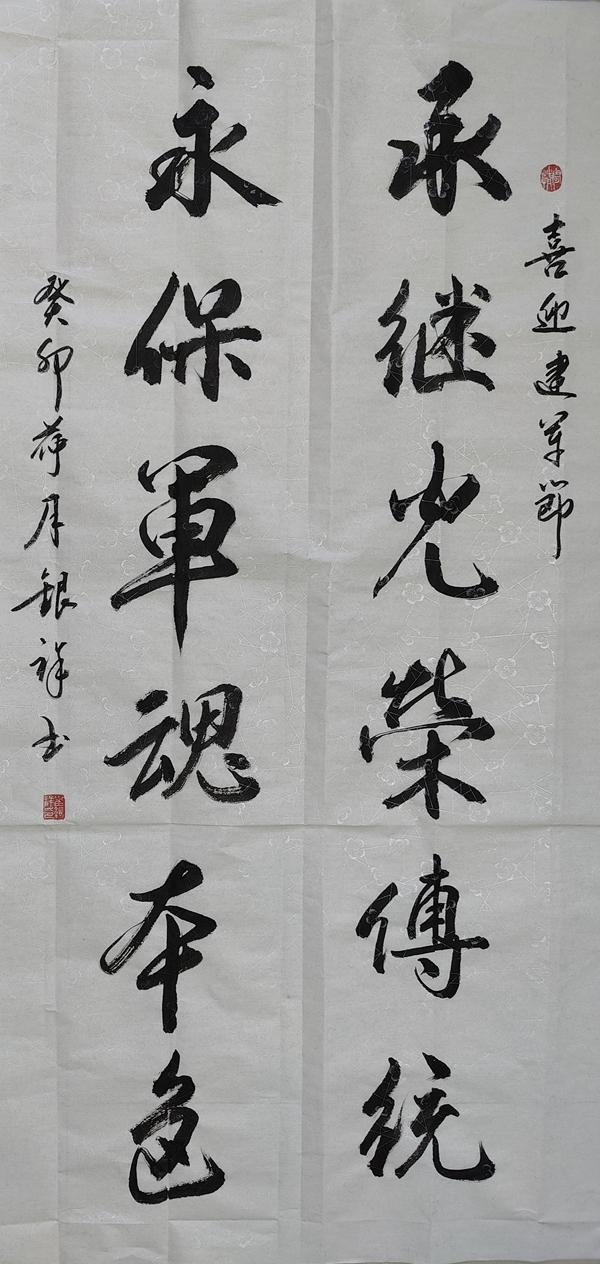 喜迎建军節
承继光榮傳统
永保軍魂本色
癸卯荷月银祥书